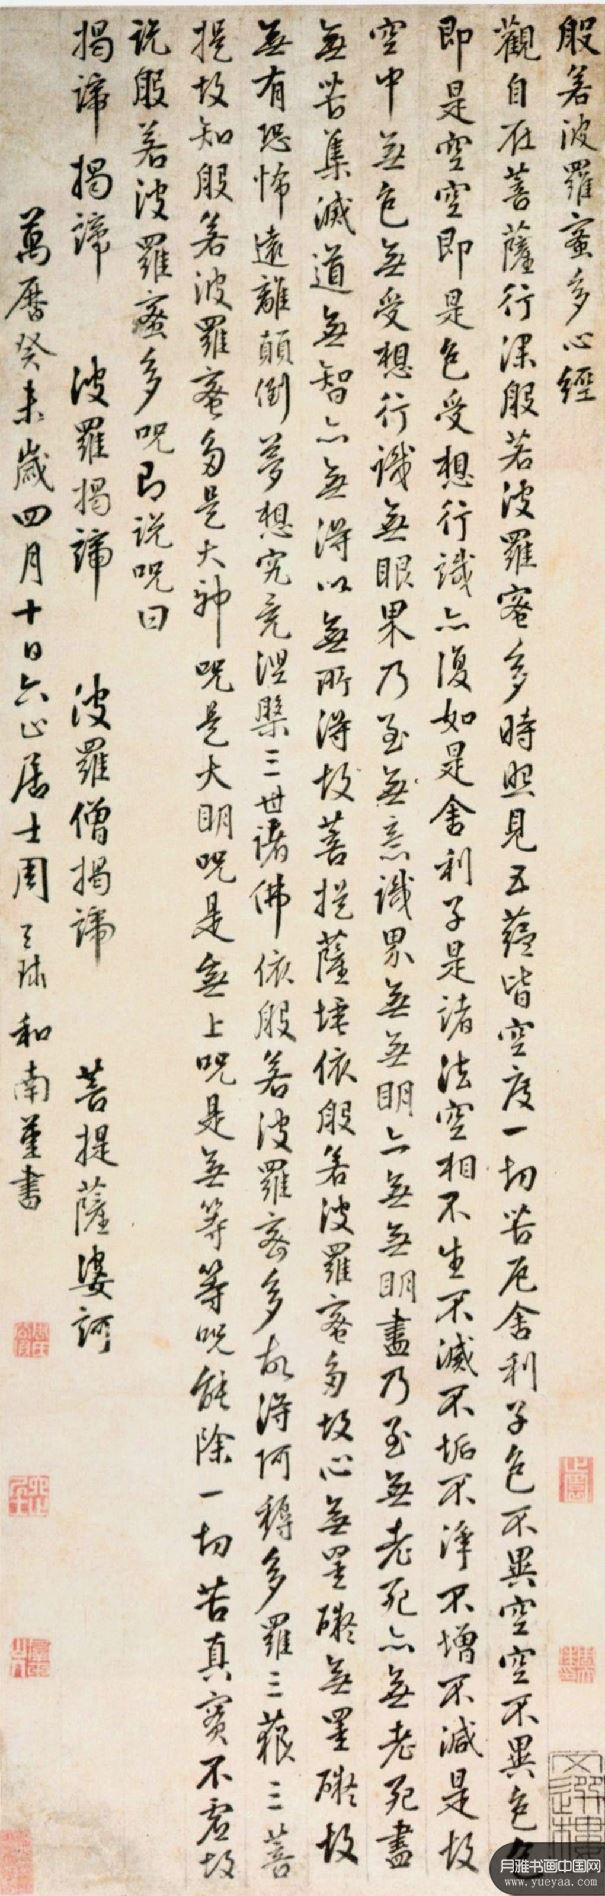 般若波羅蜜多心經
觀自在菩薩行深般若波羅蜜多時照見五蘊皆空度一切苦厄舍利子色不異空空不異色色
即是空空即是色受想行識亦復如是舍利子是諸法空相不生不滅不垢不淨不增不減是故
空中無色無受想行識無眼果乃至無意識界無無明亦無無明盡乃至無老死亦無老死盡
無苦集滅道無智亦無得以無所得故菩提薩埵依般若波羅蜜多故心無罣礙無罣礙故
無有恐怖遠離顛倒夢想究竟涅槃三世諸佛依般若波羅蜜多故得阿耨多羅三藐三菩
提故知般若波羅蜜多是大神咒是大明咒是無上咒是無等等咒能除一切苦真實不虛故
說般若波羅蜜多咒即說咒曰
揭諦揭諦 波羅揭諦 波羅僧揭諦 菩提薩婆訶
萬曆癸未歲四月十日六止居士周天球和南堇書
文選樓
月雅书画中国网
www.yueyaa.com